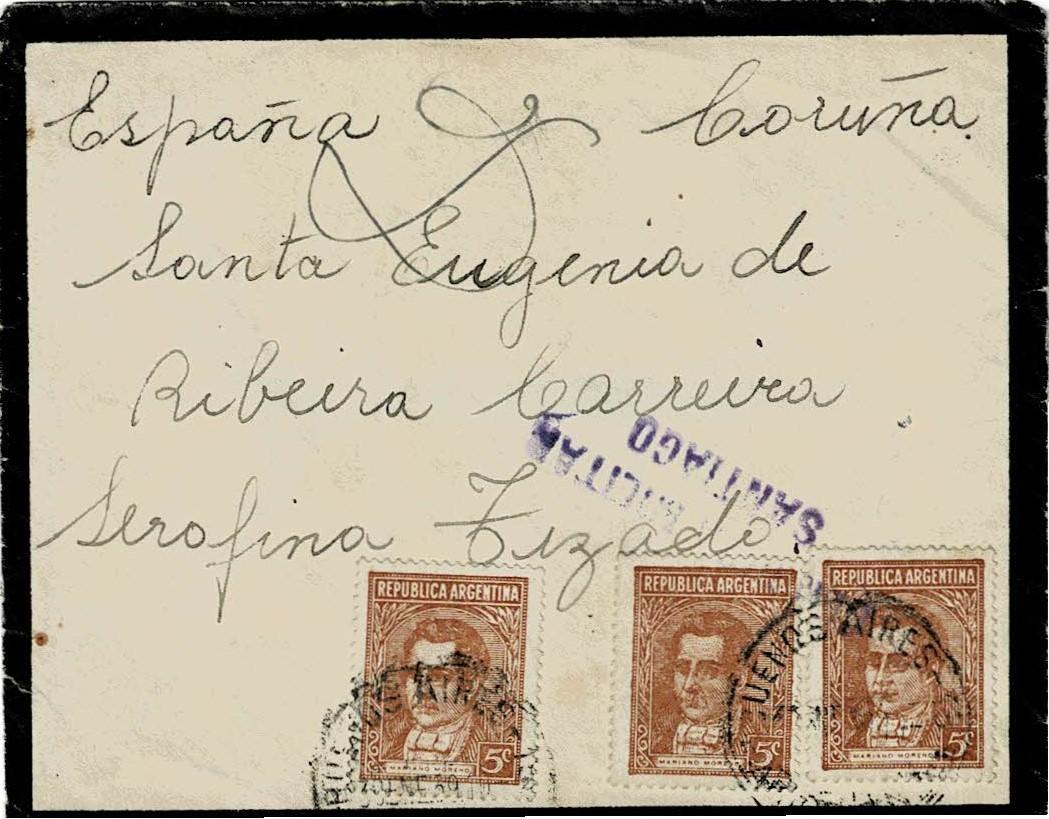 España Coruña
Santa Eugenia de
Ribeira Carreira
Serofina Tizado
MILITAR
SANTIAGO
REPUBLICA ARGENTINA REPUBLICA ARGENTINA REPUBLICA ARGENTINA
BUENOS AIRES
5c 5c 5c
MARIANO MORENO MARIANO MORENO MARIANO MORENO